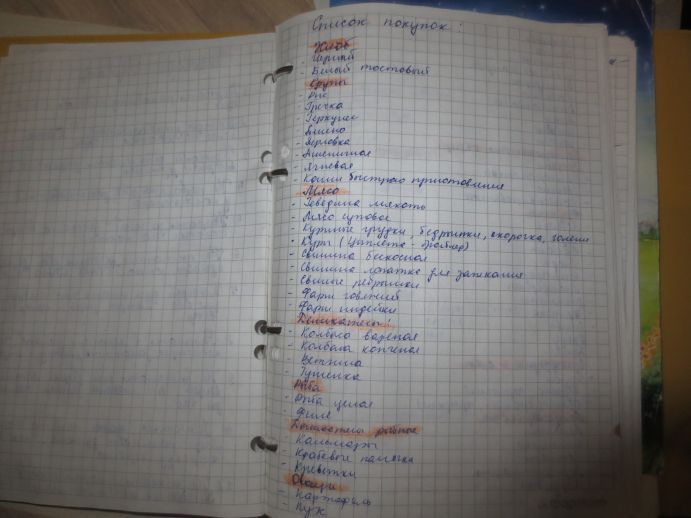 Список покупок:
Хлеб
- Черный
- Белый тостовый
Крупы
- Рис
- Гречка
- Геркулес
- Пшено
- Перловка
- Пшеничная
- Ячневая
- Каши быстрого приготовления
Мясо
- Говядина мякоть
- Мясо суповое
- Куриные грудки, бедрышки, окорочка, голени
- Куры (Цыплята - бройлер)
- Свинина бескостная
- Свинина лопатка для запекания
- Свиные ребрышки
- Фарш говяжий
- Фарш индейки
Деликатесы:
- Колбаса вареная
- Колбаса копченая
- Ветчина
- Тушенка
Рыба
- Рыба целая
- Филе
рыбное
- Кальмары
- Крабовые палочки
- Креветки
Овощи
- Картофель
- Лук